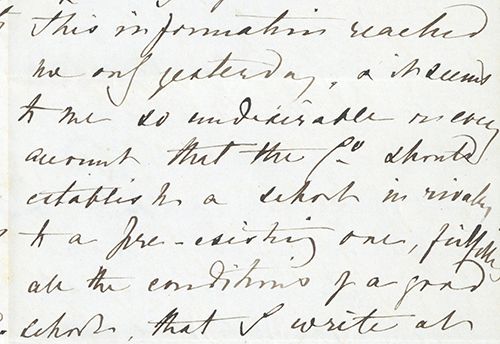 This information reached
me only yesterday, & it seems
to me so undesirable on every
account that the Co should
establish a school in rivalry
to a pre-existing one, fulfilling
all the conditions of a good
school, that I write at